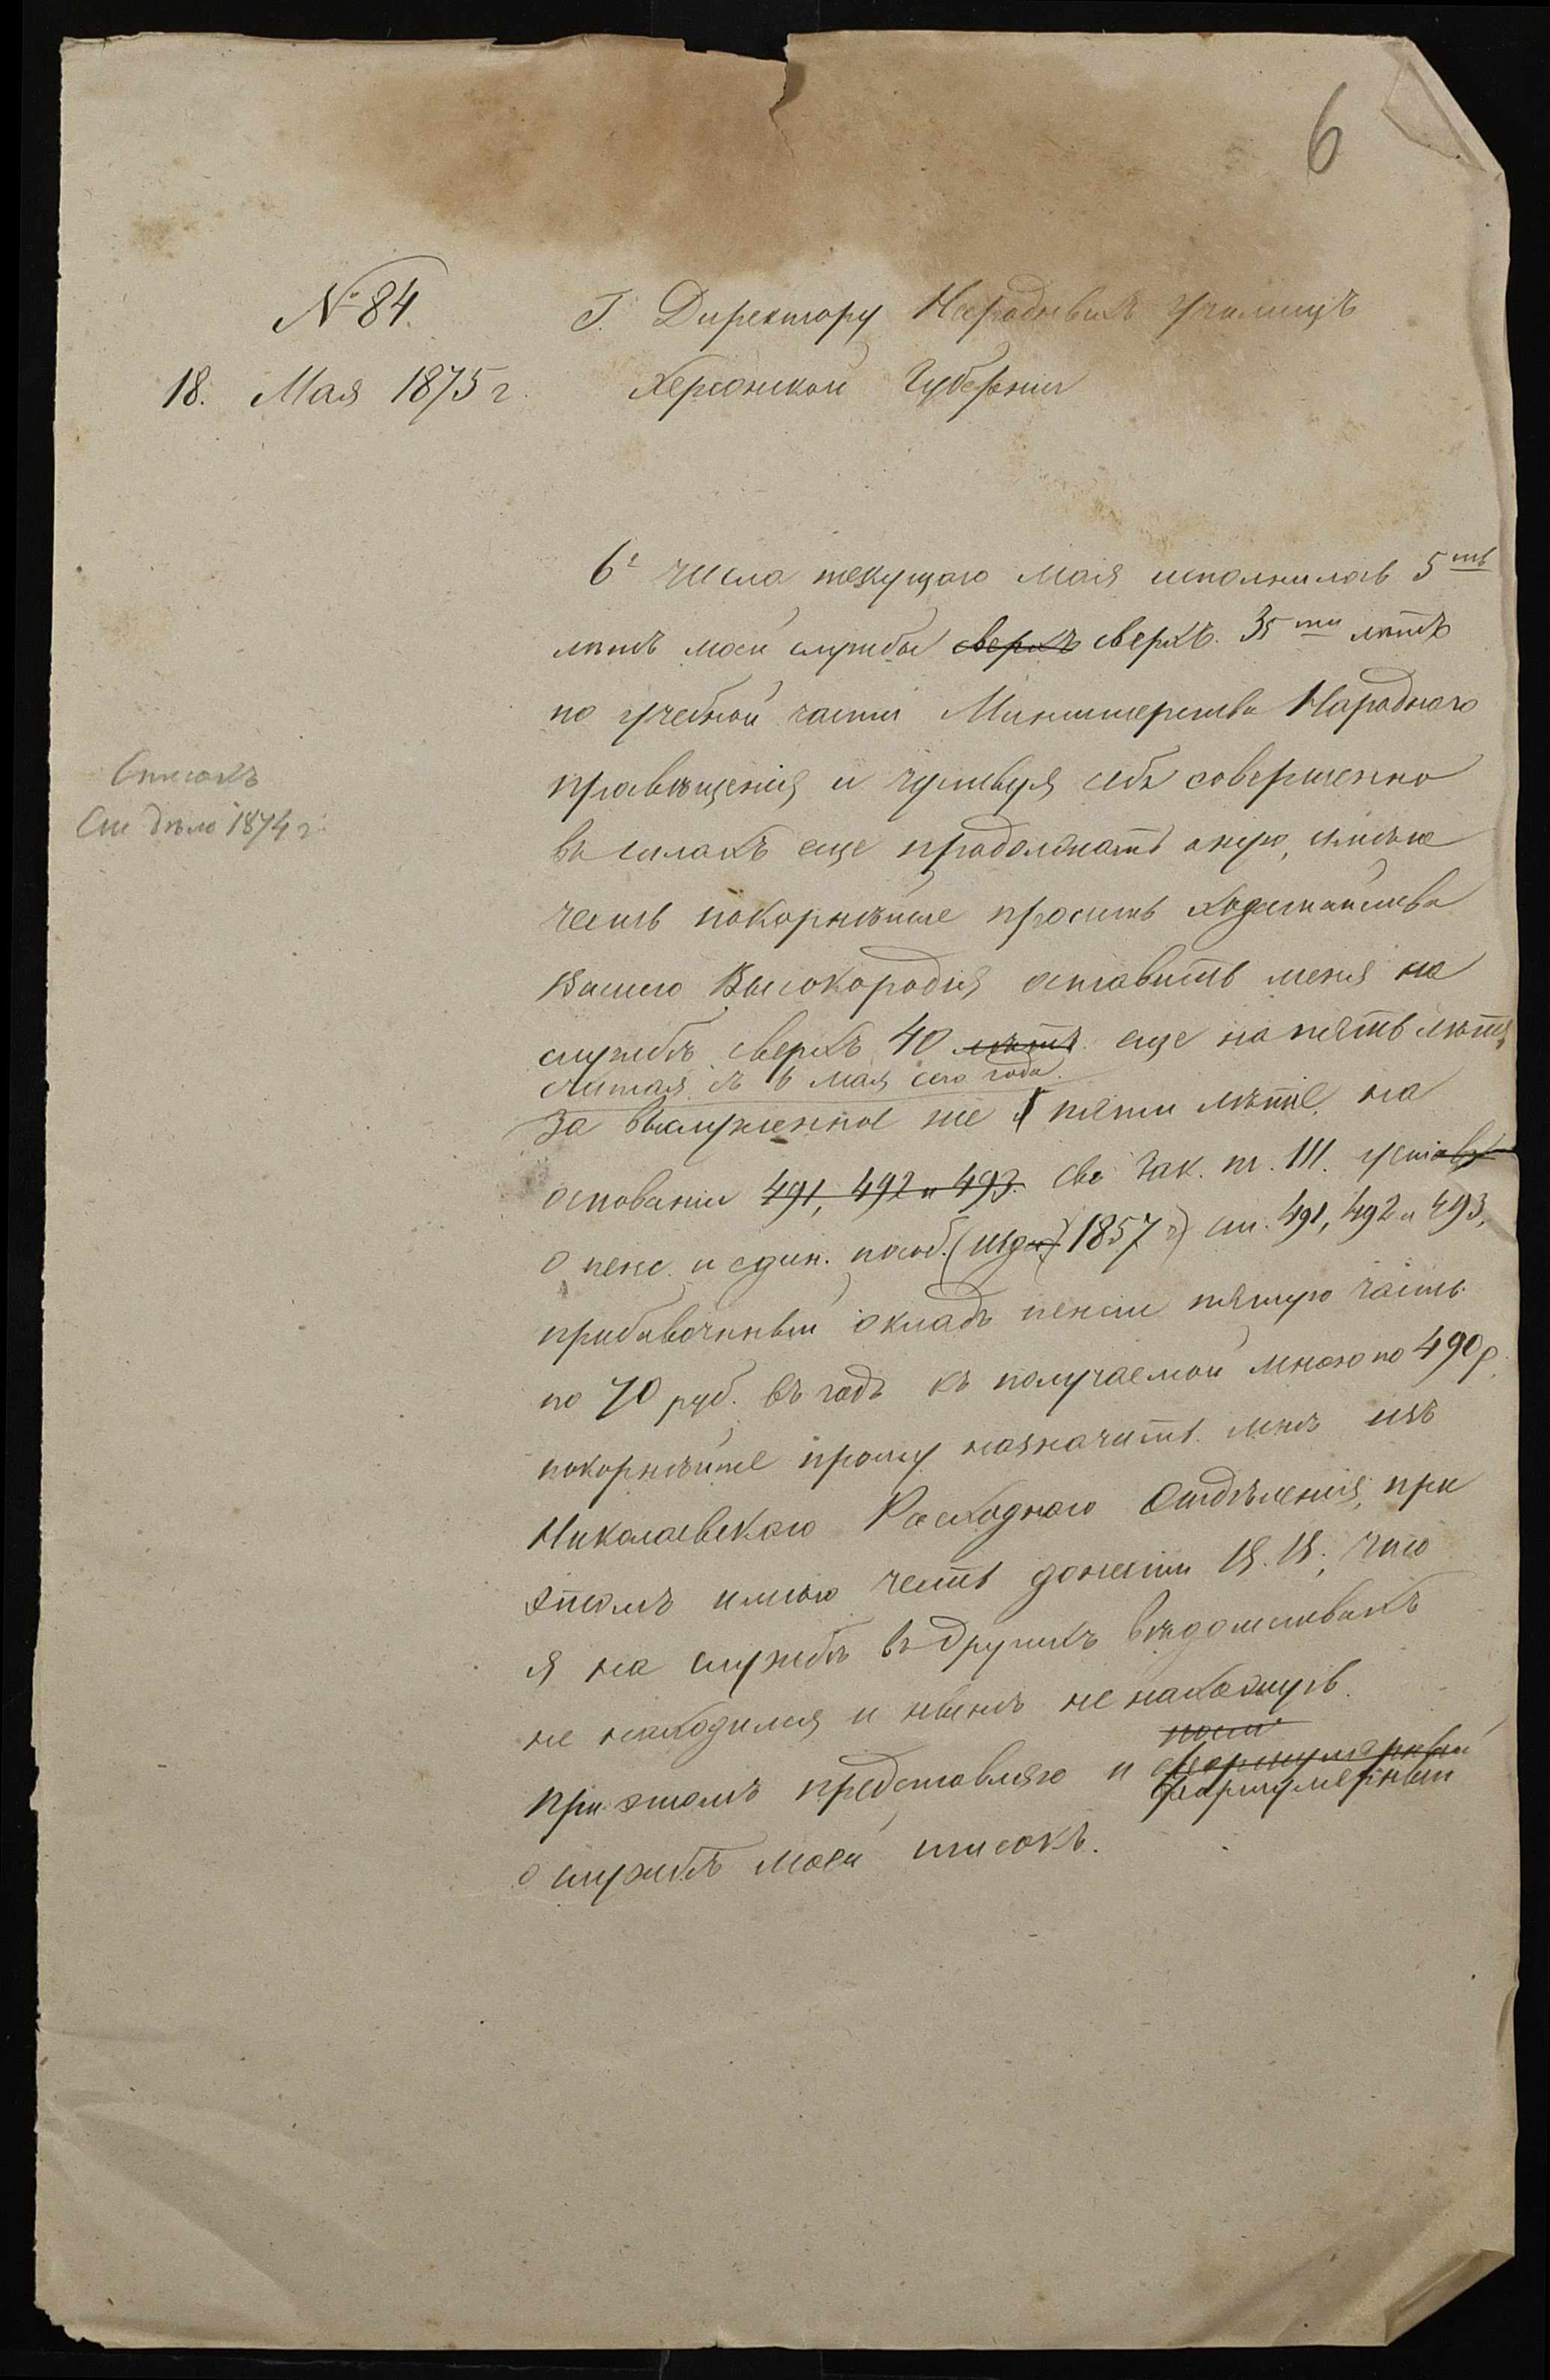 6
№ 84.
18. Мая 1875 г.
Г. Директору Народныхъ Училищъ
Херсонской Губерніи
6г числа текущаго Мая исполнилось 5ть
лѣтъ моей службы сверхъ сверхъ 35ти лѣтъ
по учебной части Министерства Народнаго
просвѣщенія и чувствуя себя совершенно
въ силахъ еще продолжать оную, имѣю
честь покорнѣйше просить ходатайства
Вашего Высокородія оставить меня на
службѣ сверхъ 40 лѣтъ еще на пять лѣтъ,
считая съ 6 мая сего года.
За выслуженное же пяти лѣтіе, на
основаніи 491, 492 и 493. Св. Зак. т. III. уставъ
о пенс. и един. пособ. (изд.) 1857 г) ст. 491, 492 и 493,
прибавочный окладъ пенсіи пятую часть
по 70 руб. въ годъ къ получаемой мною по 490 р.
покорнѣйше прошу назначить мнѣ изъ
Николаевскаго Расходнаго Отдѣленія, при
этомъ имѣю честь донести В. В., что
я на службѣ въ другихъ вѣдомствахъ
не находился и нынѣ не нахожусь.
При этомъ представляю и формулярный
формулярный
о службѣ моей списокъ.
Списокъ
См дѣло 1874 г.